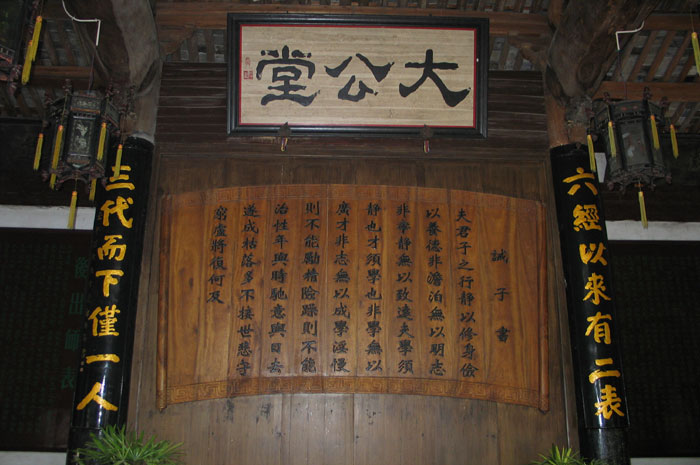 大公堂
六經以來有二表
誡子書
夫君子之行靜以修身儉
以養德非澹泊無以明志
非寧靜無以致遠夫學須
靜也才須學也非學無以
廣才非志無以成學淫慢
則不能勵精險躁則不能
治性年與時馳意與日去
遂成枯落多不接世悲守
窮廬將復何及
三代而下僅一人
後出師表